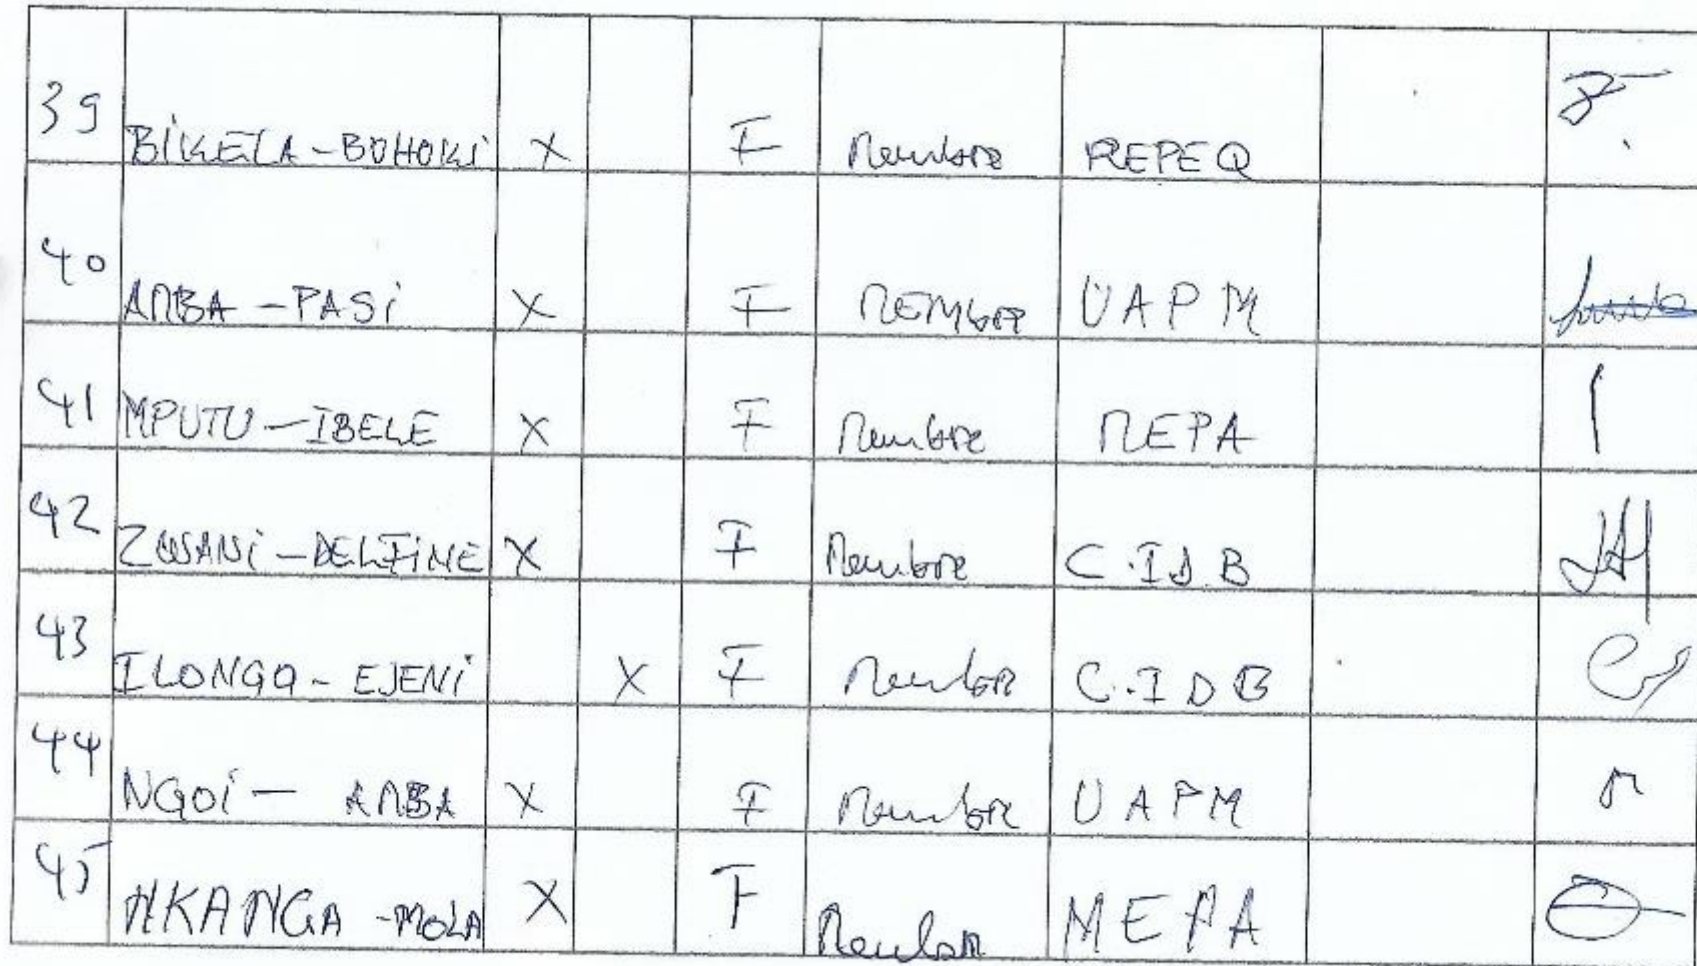 39 BIKELA-BOHOKI X F Membre REPEQ
40 AMBA-PASI X F MEMbre UAPM
41 MPUTU-IBELE X F Membre MEPA
42 ZWSANI-DELFINE X F Membre C.IDB
43 ILONGO-EJENI X F Membre C.IDB
44 NGOI- AMBA X F Membre UAPM
45 NKANGA-MOLA X F Membre MEPA